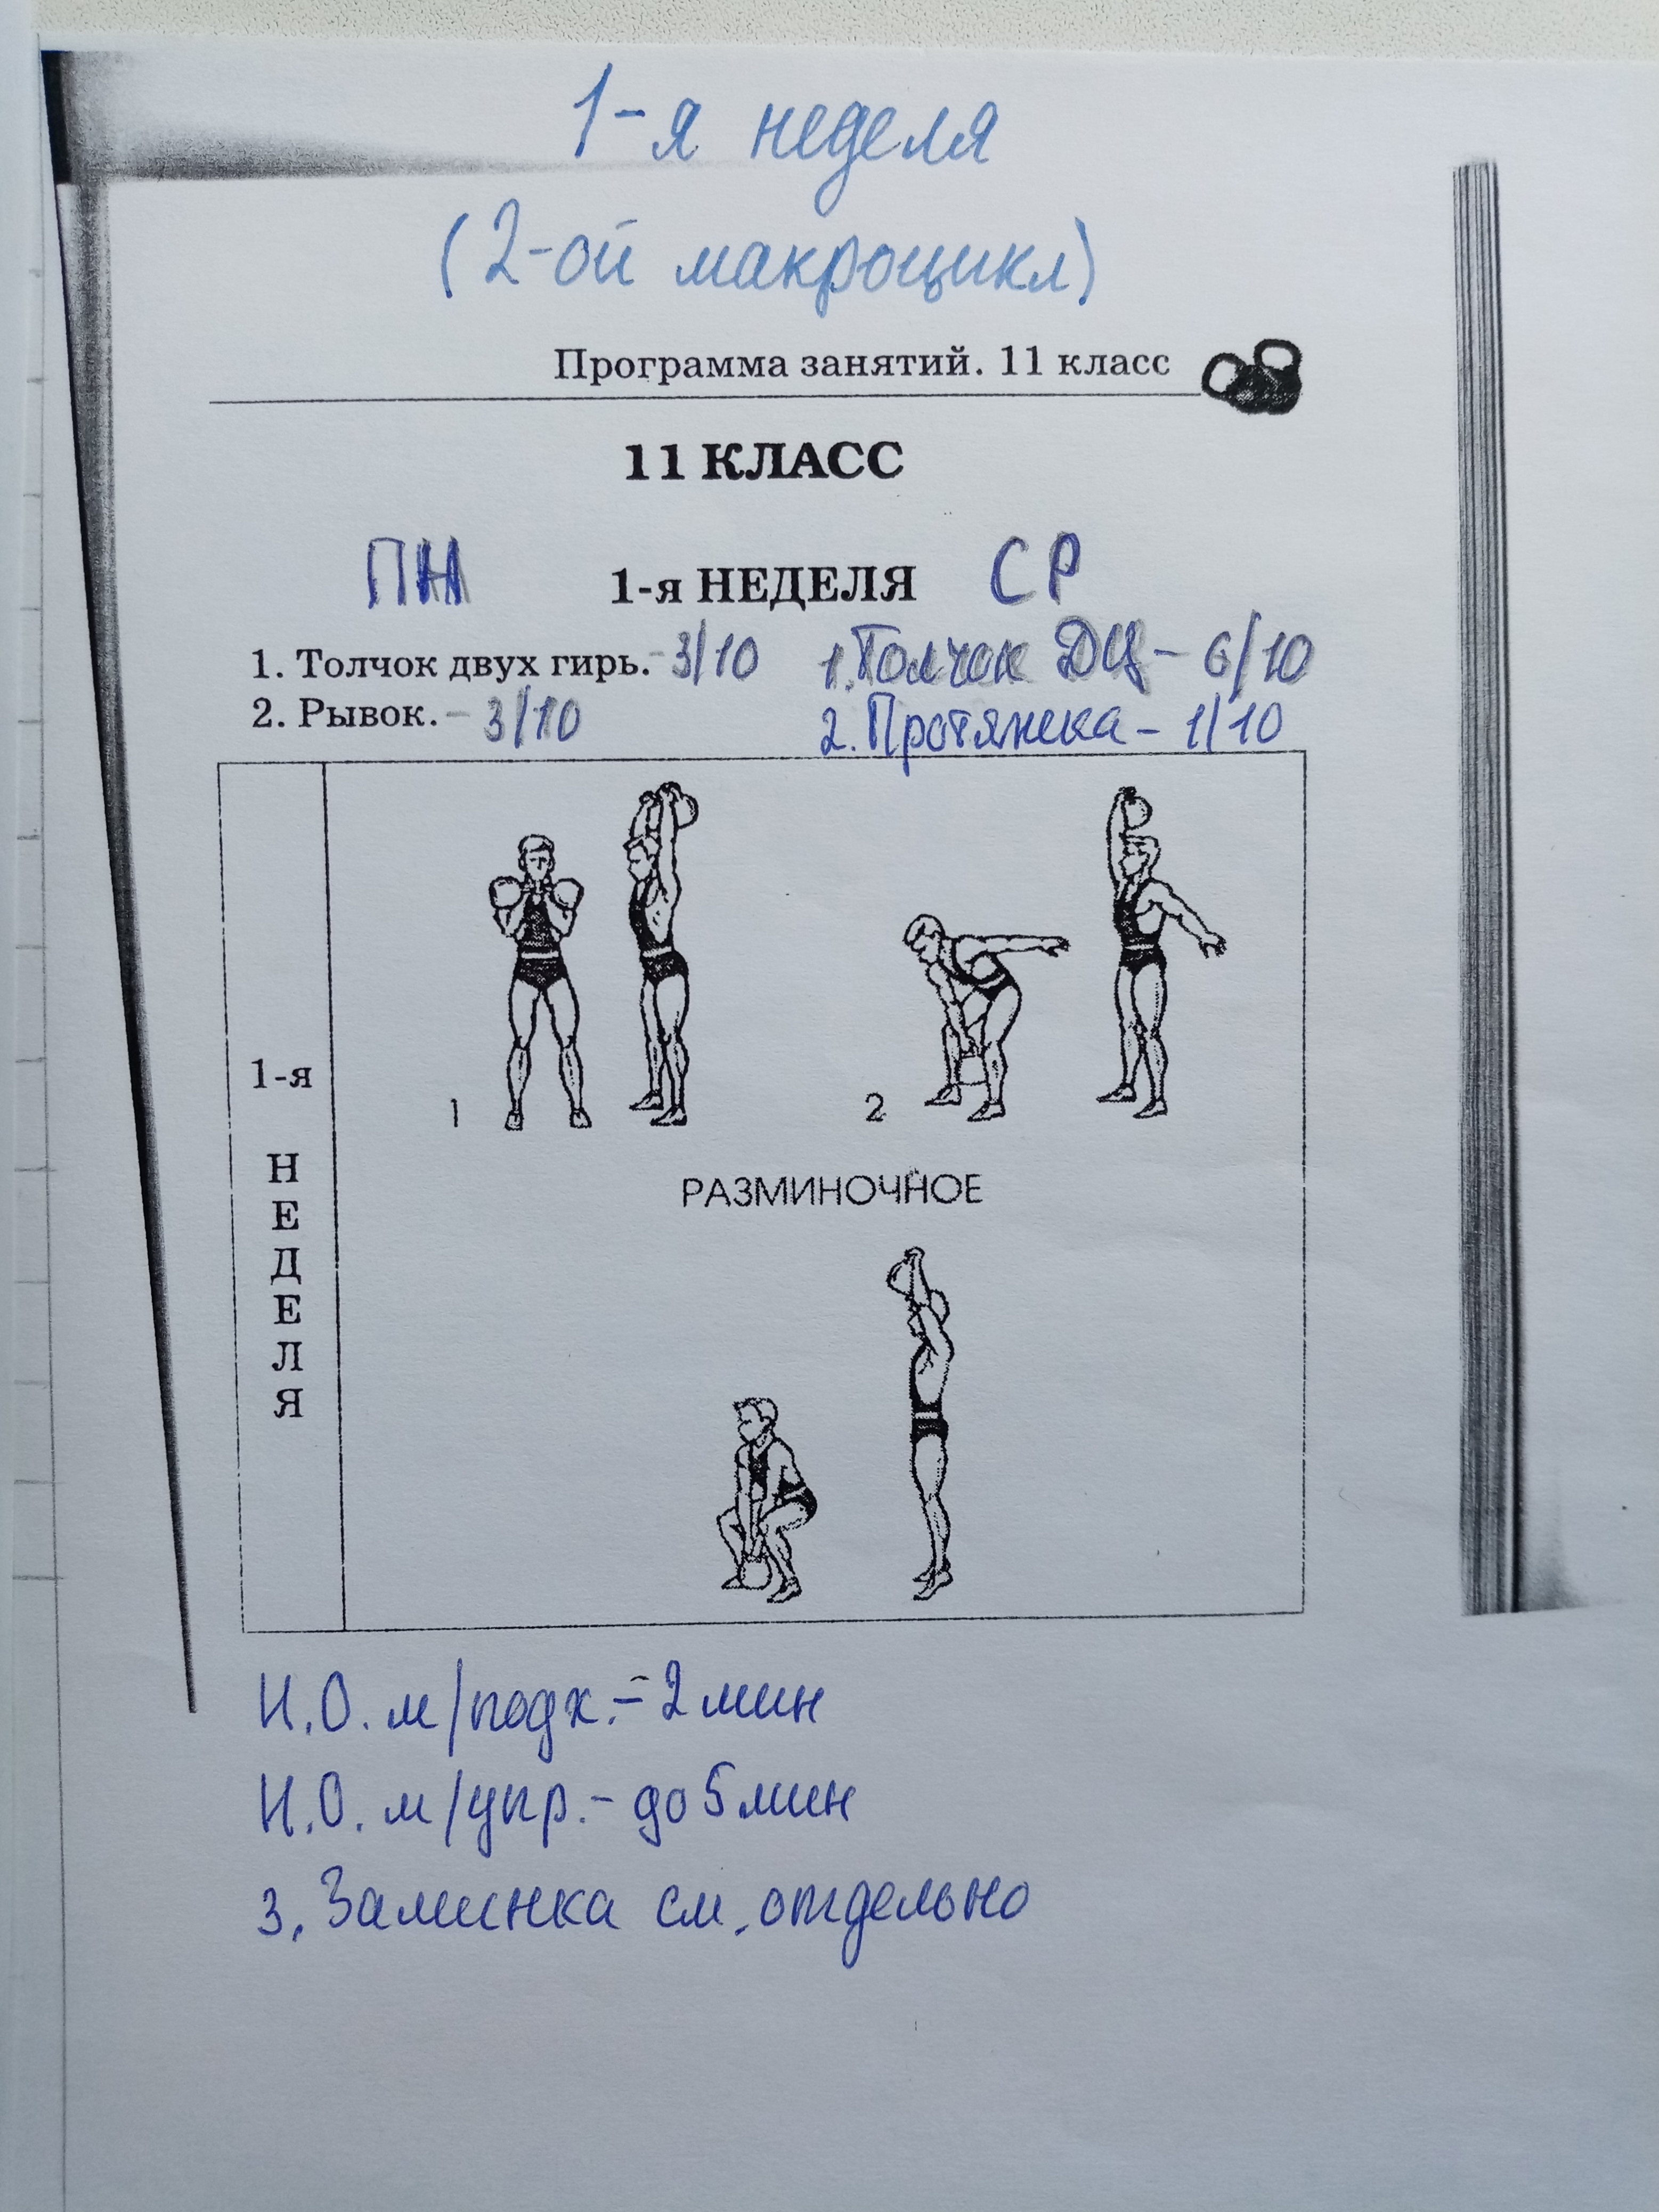 1-я неделя
(2-ой макроцикл)
Программа занятий. 11 класс
11 КЛАСС
ПН 1-я НЕДЕЛЯ СР
1. Толчок двух гирь. - 3/10 1. Толчок ДЦ - 6/10
2. Рывок. - 3/10 2. Протяжка - 1/10
1-я
НЕДЕЛЯ
1
2
РАЗМИНОЧНОЕ
И.О. м/подх. - 2 мин
И.О. м/упр. - до 5 мин
3. Заминка см. отдельно